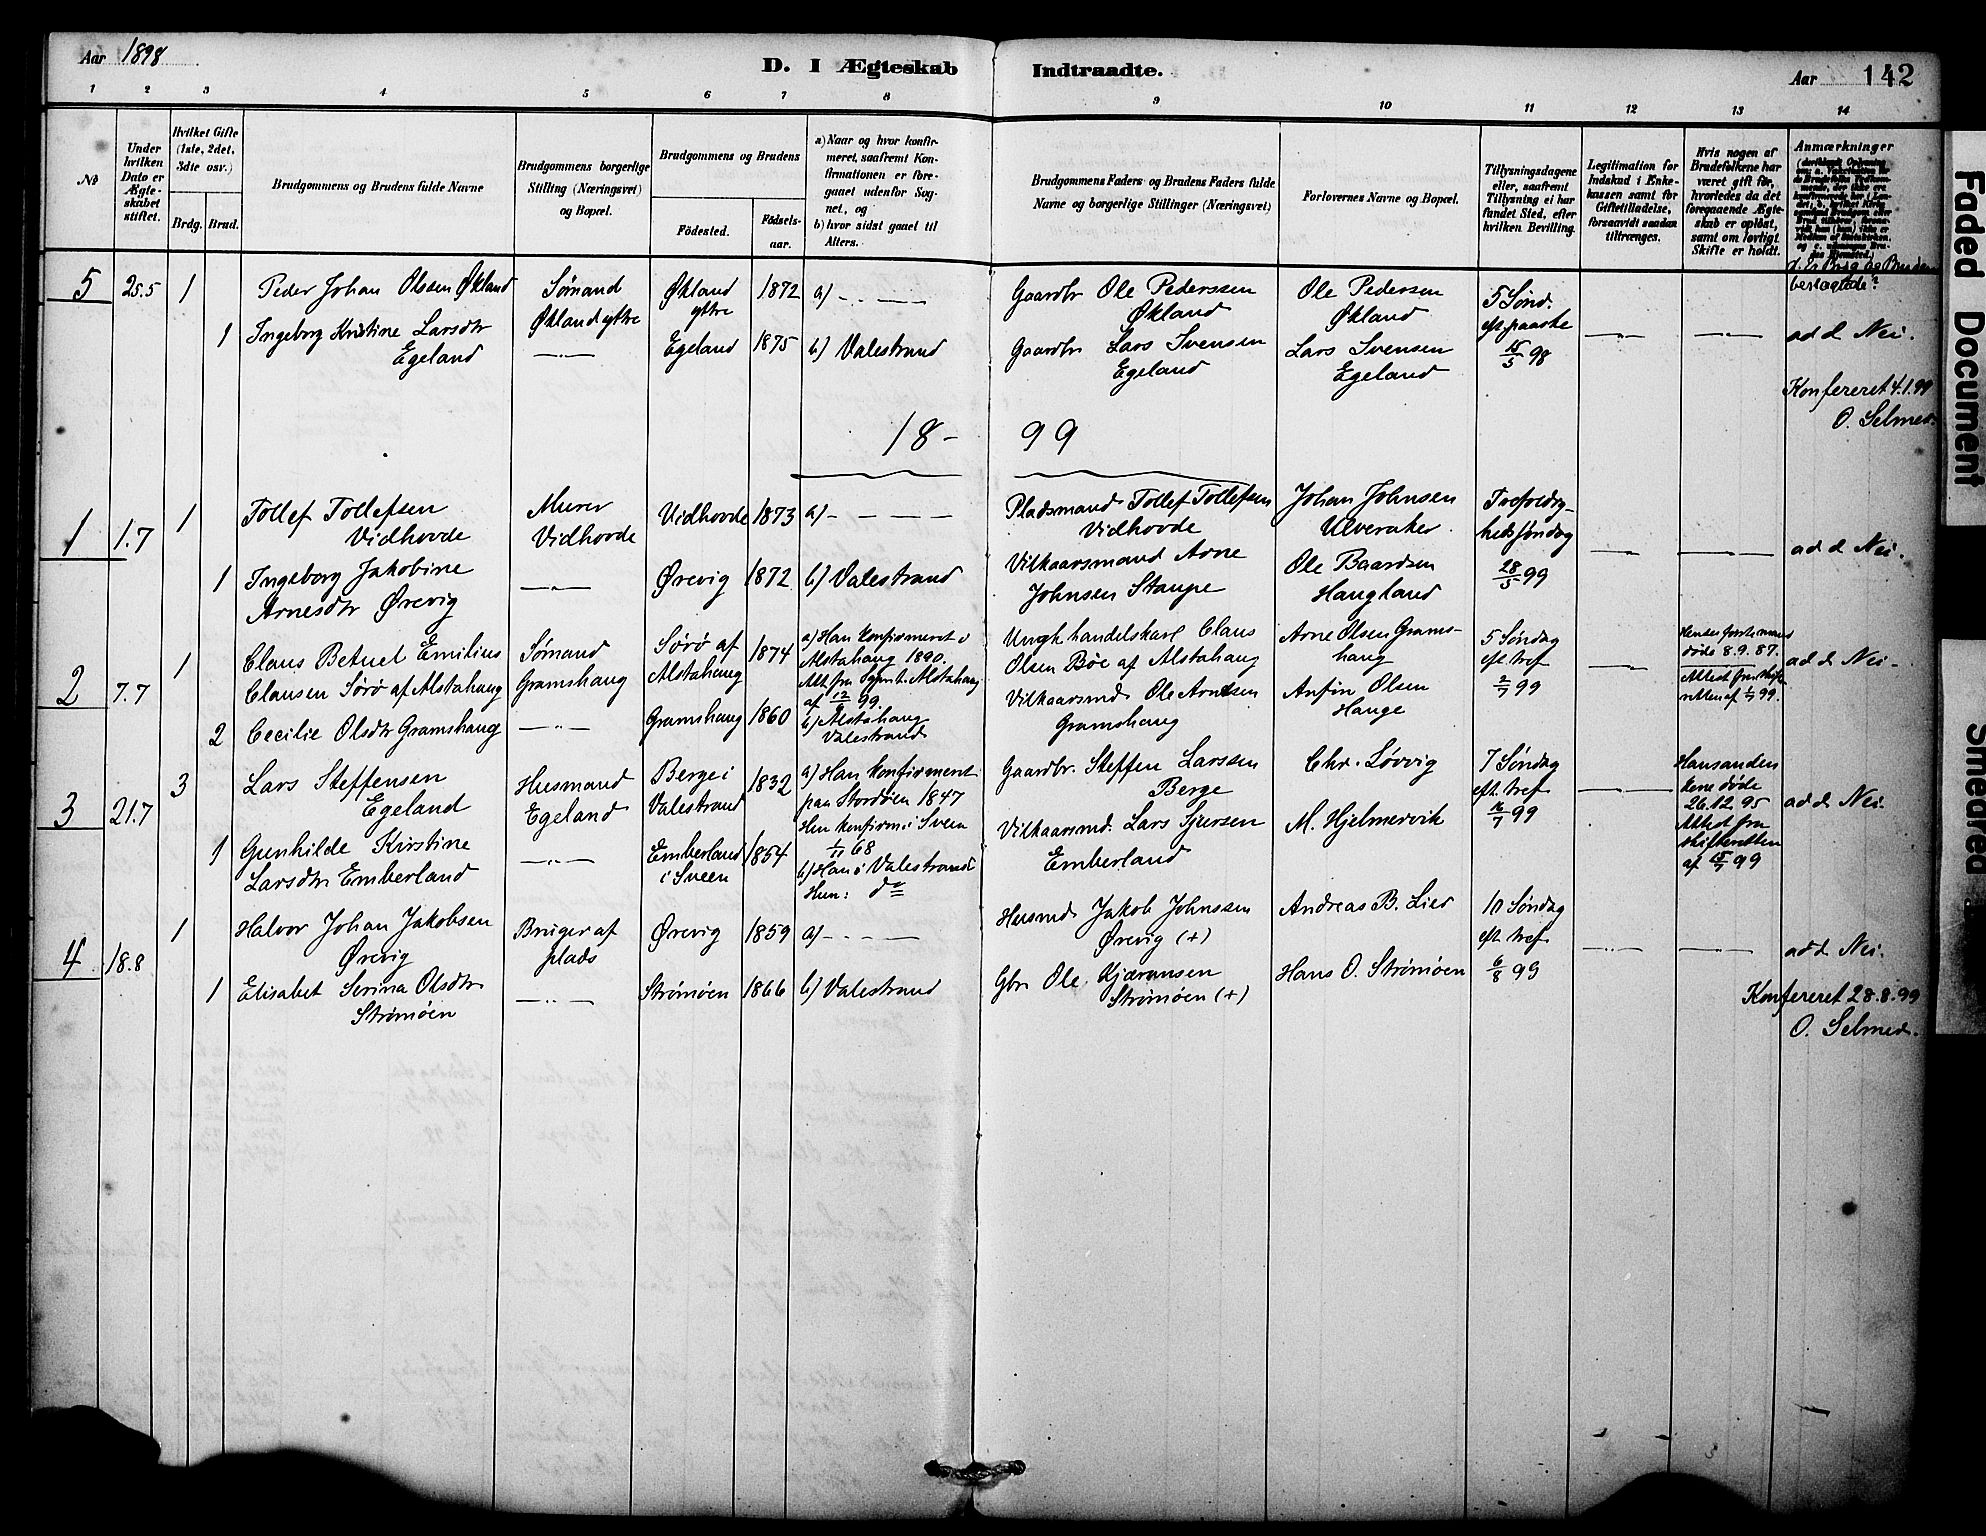 Aar 1898
D. I Ægteskab Indtraadte.
Aar 142
1 2 3 4 5 6 7 8 9 10 11 12 13 14
No
Under hvilken Dato er Ægteskabet stiftet.
Hvilket Gifte (1ste, 2det, 3die osv.)
Brdg. Brud.
Brudgommens og Brudens fulde Navne
Brudgommens borgerlige Stilling (Næringsvei) og Bopæl.
Brudgommens og Brudens
Födested.
Födsels-aar.
a) Naar og hvor konfirmeret, saafremt Konfirmationen er foregaaet udenfor Sognet, og
b) hvor sidst gaaet til Alters.
Brudgommens Faders og Brudens Faders fulde Navne og borgerlige Stillinger (Næringsvei)
Forlovernes Navne og Bopæl.
Tillysningsdagene eller, saafremt Tillysning ei har fundet Sted, efter hvilken Bevilling.
Legitimation for Indskud i Enkekassen samt for Giftetilladelse, forsaavidt saadan tiltrænges.
Hvis nogen af Brudefolkene har været gift før, hvorledes da det foregaaende Ægteskab er oplöst, samt om lovligt Skifte er holdt.
Anmærkninger
d. Er Brdg og Bruden
beslægtede?
5 25.5 1 Peder Johan Olsen Økland
Sømand
Økland ytre
Økland ytre
1872
a) - - -
Gaardbr Ole Pederssen
Økland
Ole Pedersen
Økland
5 Sønd.
eft. paaske
15/5 98
1 Ingeborg Kristine Larsdtr
Egeland
Egeland
1875
b) Valestrand
Gaardbr Lars Svensen
Egeland
Lars Svensen
Egeland
ad d Nei.
Konfereret 4.1.99
O. Selmer.
18 - 99
1 1.7 1 Tollef Tollefsen
Vidhovde
Murer
Vidhovde
Vidhovde
1873
a) - - -
Pladsmand Tollef Tollefsen
Vidhovde
Johan Johnsen
Ulveraker
Trefoldig-
hedssøndag
28/5 99
1 Ingeborg Jakobine
Arnesdtr Ørevig
Ørevig
1872
b) Valestrand
Vilkaarsmand Arne
Johnsen Staupe
Ole Baardsen
Haugland
ad d Nei.
2 7.7 1 Claus Betuel Emilius
Clausen Sørø af Alstahaug
Sømand
Gramshaug
Sørø af
Alstahaug
1874
a) Han konfirmeret i
Alstahaug 1890.
Alstahaug
af 12/ 99.
b) Alstahaug
Valestrand
Ungk. handelskarl Claus
Olsen Bøe af Alstahaug
Arne Olsen Grams-
haug
5 Søndag
eft. tref
2/7 99
2 Cecilie Olsdtr Gramshaug
Gramshaug
1860
Vilkaarsmd. Ole Arnesen
Gramshaug
Anfin Olsen
Hauge
døde 8.9.87.
Attest fra Skifte-
retten af 1/7 99.
ad d Nei.
3 21.7 3 Lars Steffensen
Egeland
Husmand
Egeland
Berge i
Valestrand
1832
a) Han konfirmeret
paa Stordøen 1847
Hun konfirm. i Sveen
1/11 68
b) Han i Valestrand
Hun: do
Gaardbr. Steffen Larssen
Berge
Chr. Løvvig
7 Søndag
eft. tref
16/7 99
1 Gunhilde Kirstine
Larsdtr Emberland
Emberland
i Sveen
1854
Vilkaarsmd. Lars Sjursen
Emberland
M. Hjelmervik
Hans anden
kone døde
26.12.95
Attest fra
skifteretten
af 15/7 99
ad d Nei.
4 18.8 1 Halvor Johan Jakobsen
Ørevig
Bruger af
plads
Ørevig
1859
a) - - -
Husmd Jakob Johnssen
Ørevig (+)
Andreas B. Lier
10 Søndag
eft. tref
6/8 99
1 Elisabet Serina Olsdtr
Strømøen
Strømøen
1866
b) Valestrand
Gbr Ole Kjæransen
Strømøen (+)
Hans O. Strømøen
ad d Nei.
Konfereret 28.8.99
O. Selmer.
Faded Document
Smeared